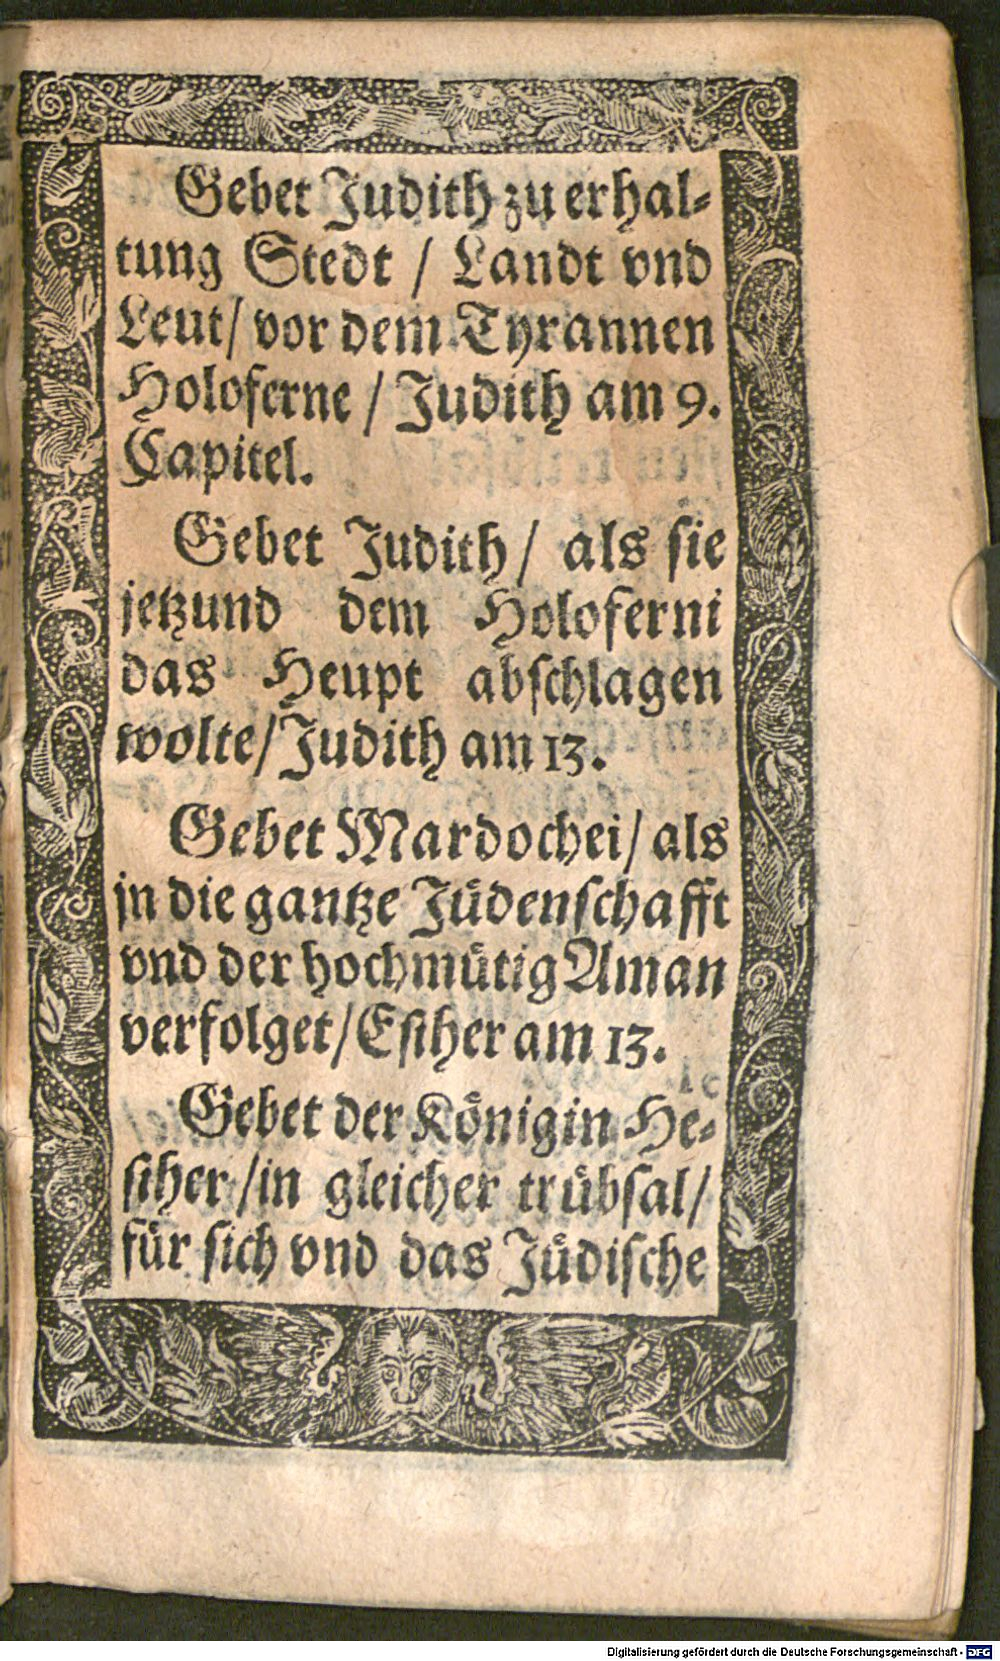 Gebet Judith zu erhal-
tung Stedt / Landt vnd
Leut/ vor dem Tyrannen
Holoferne / Judith am 9.
Capitel.
Gebet Judith / als sie
jetzund dem Holoferni
das Heupt abschlagen
wolte/ Judith am 13.
Gebet Mardochei/ als
jn die gantze Jüdenschafft
vnd der hochmütig Aman
verfolget/ Esther am 13.
Gebet der Königin He-
sther /in gleicher trübsal/
für sich vnd das Jüdische
Digitalisierung gefördert durch die Deutsche Forschungsgemeinschaft - DFG